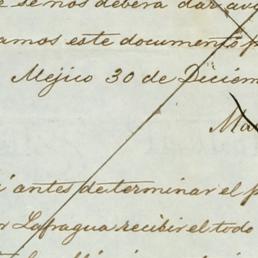 se nos deberá dar avi
amos este documento p
Méjico 30 de Diciem
Ma
i antes de terminar el p
r Lafragua recibir el todo